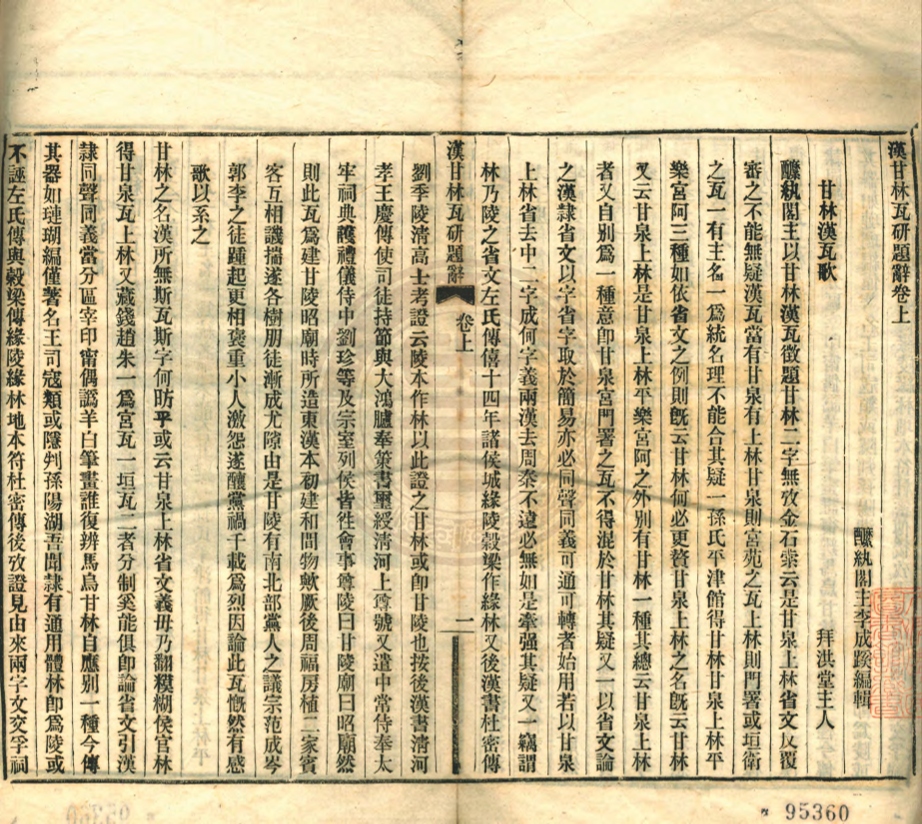 漢甘林瓦研題辭卷上
釄紈閣主李成蹊編輯
甘林漢瓦歌
拜洪堂主人
釄紈閣主以甘林漢瓦徵題甘林二字無攷金石索云是甘泉上林省文反覆
審之不能無疑漢瓦當有甘泉有上林甘泉則宮苑之瓦上林則門署或垣衛
之瓦一有主名一爲統名理不能合其疑一孫氏平津館得甘林甘泉上林平
樂宮阿三種如依省文之例則旣云甘林何必更贅甘泉上林之名旣云甘林
又云甘泉上林是甘泉上林平樂宮阿之外別有甘林一種其總云甘泉上林
者又自別爲一種意卽甘泉宮門署之瓦不得混於甘林其疑又一以省文論
之漢隸省文以字省字取於簡易亦必同聲同義可通可轉者始用若以甘泉
上林省去中二字成何字義兩漢去周秦不遠必無如是牽强其疑又一竊謂
林乃陵之省文左氏傳僖十四年諸侯城緣陵穀梁作緣林又後漢書杜密傳
漢甘林瓦研題辭
卷上
一
劉季陵淸高士考證云陵本作林以此證之甘林或卽甘陵也按後漢書淸河
孝王慶傳使司徒持節與大鴻臚奉策書璽綬淸河上尊號又遣中常侍奉太
牢祠典護禮儀侍中劉珍等及宗室列侯皆徃會事尊陵曰甘陵廟曰昭廟然
則此瓦爲建甘陵昭廟時所造東漢本初建和間物歟厥後周福房植二家賓
客互相譏揣遂各樹朋徒漸成尤隙由是甘陵有南北部黨人之議宗范成岑
郭李之徒踵起更相褒重小人激怨遂釀黨禍千載爲烈因論此瓦慨然有感
歌以系之
甘林之名漢所無斯瓦斯字何昉乎或云甘泉上林省文義毋乃翻糢糊侯官林
得甘泉瓦上林又藏錢趙朱一爲宮瓦一垣瓦二者分制奚能俱卽論省文引漢
隸同聲同義當分區宰印甯偶譌羊白筆畫誰復辨馬烏甘林自應別一種今傳
其器如璉瑚編僅著名王司寇類或隱判孫陽湖吾聞隸有通用體林卽爲陵或
不誣左氏傳與穀梁傳緣陵緣林地本符杜密傳後攷證見由來兩字文交孚祠
95360